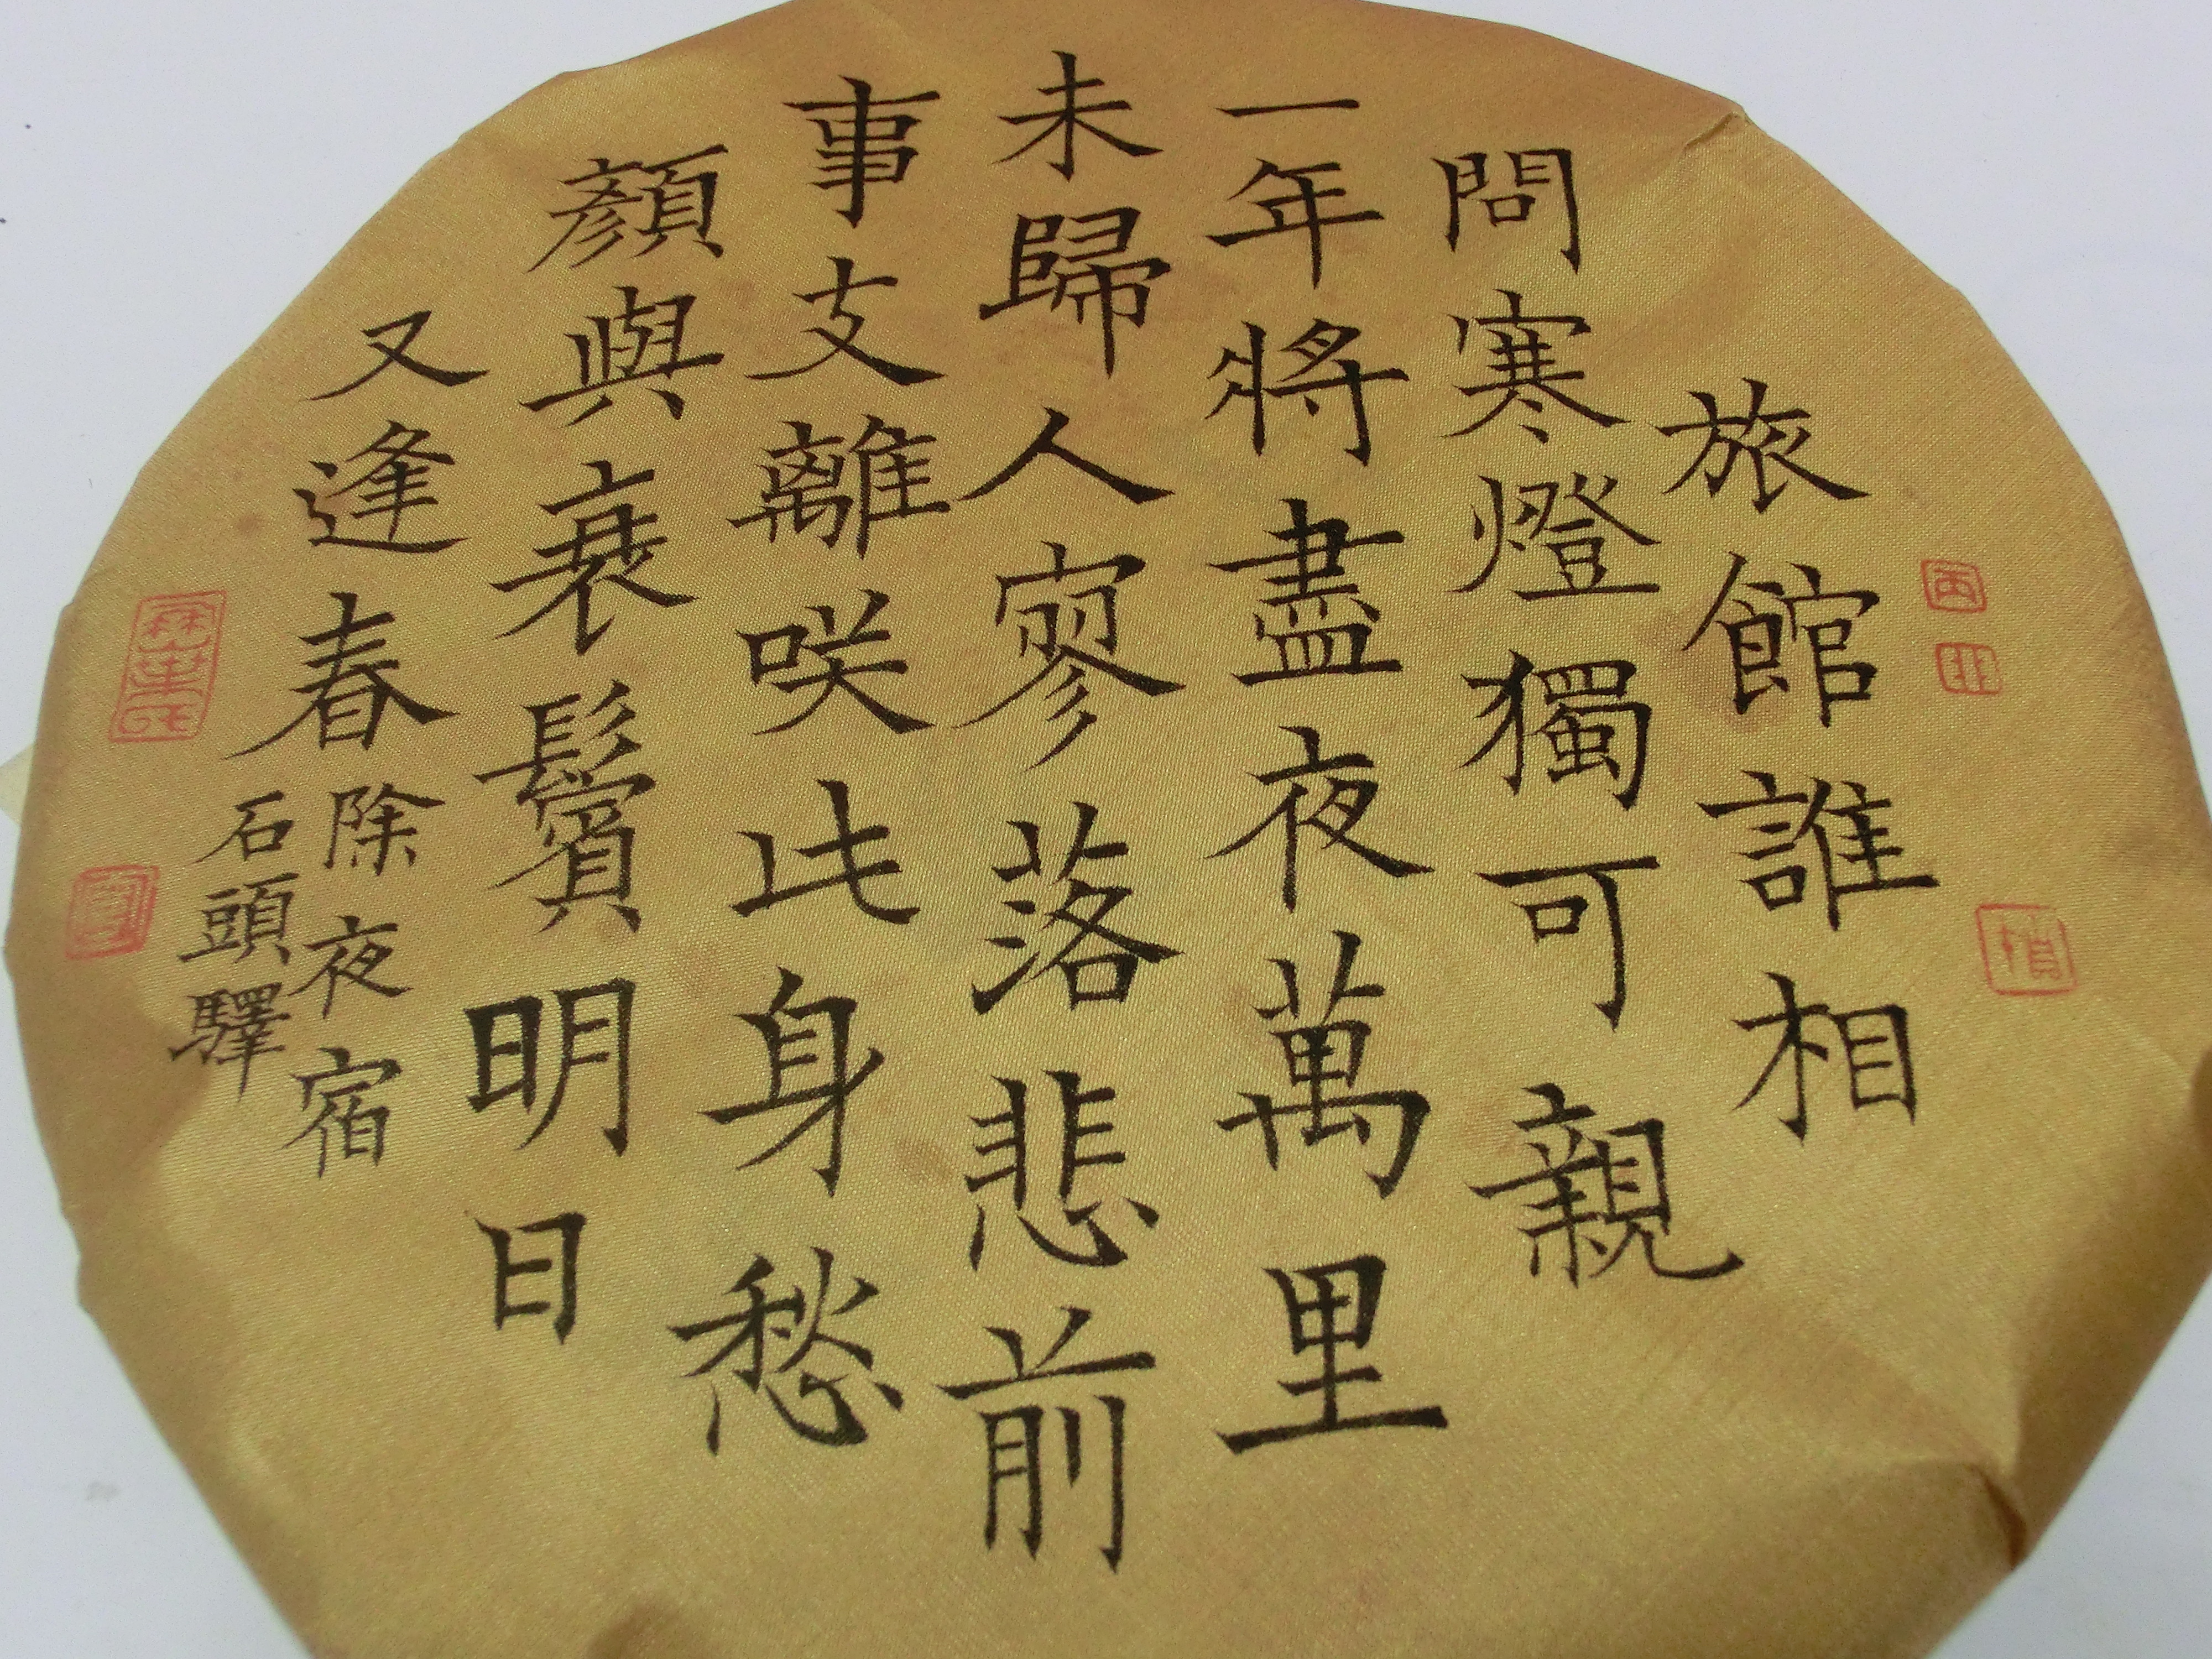 旅館誰相
問寒燈獨可親
一年將盡夜萬里
未歸人寥落悲前
事支離咲此身愁
顏與衰鬢明日
又逢春
除夜宿
石頭驛